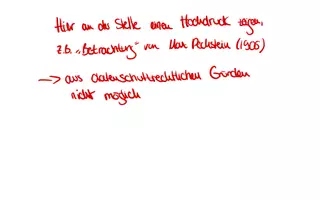 Hier an der Stelle einen Hochdruck zeigen,
z.B. „Betrachtung" von Max Pechstein (1905)
-> aus datenschutzrechtlichen Gründen
nicht möglich